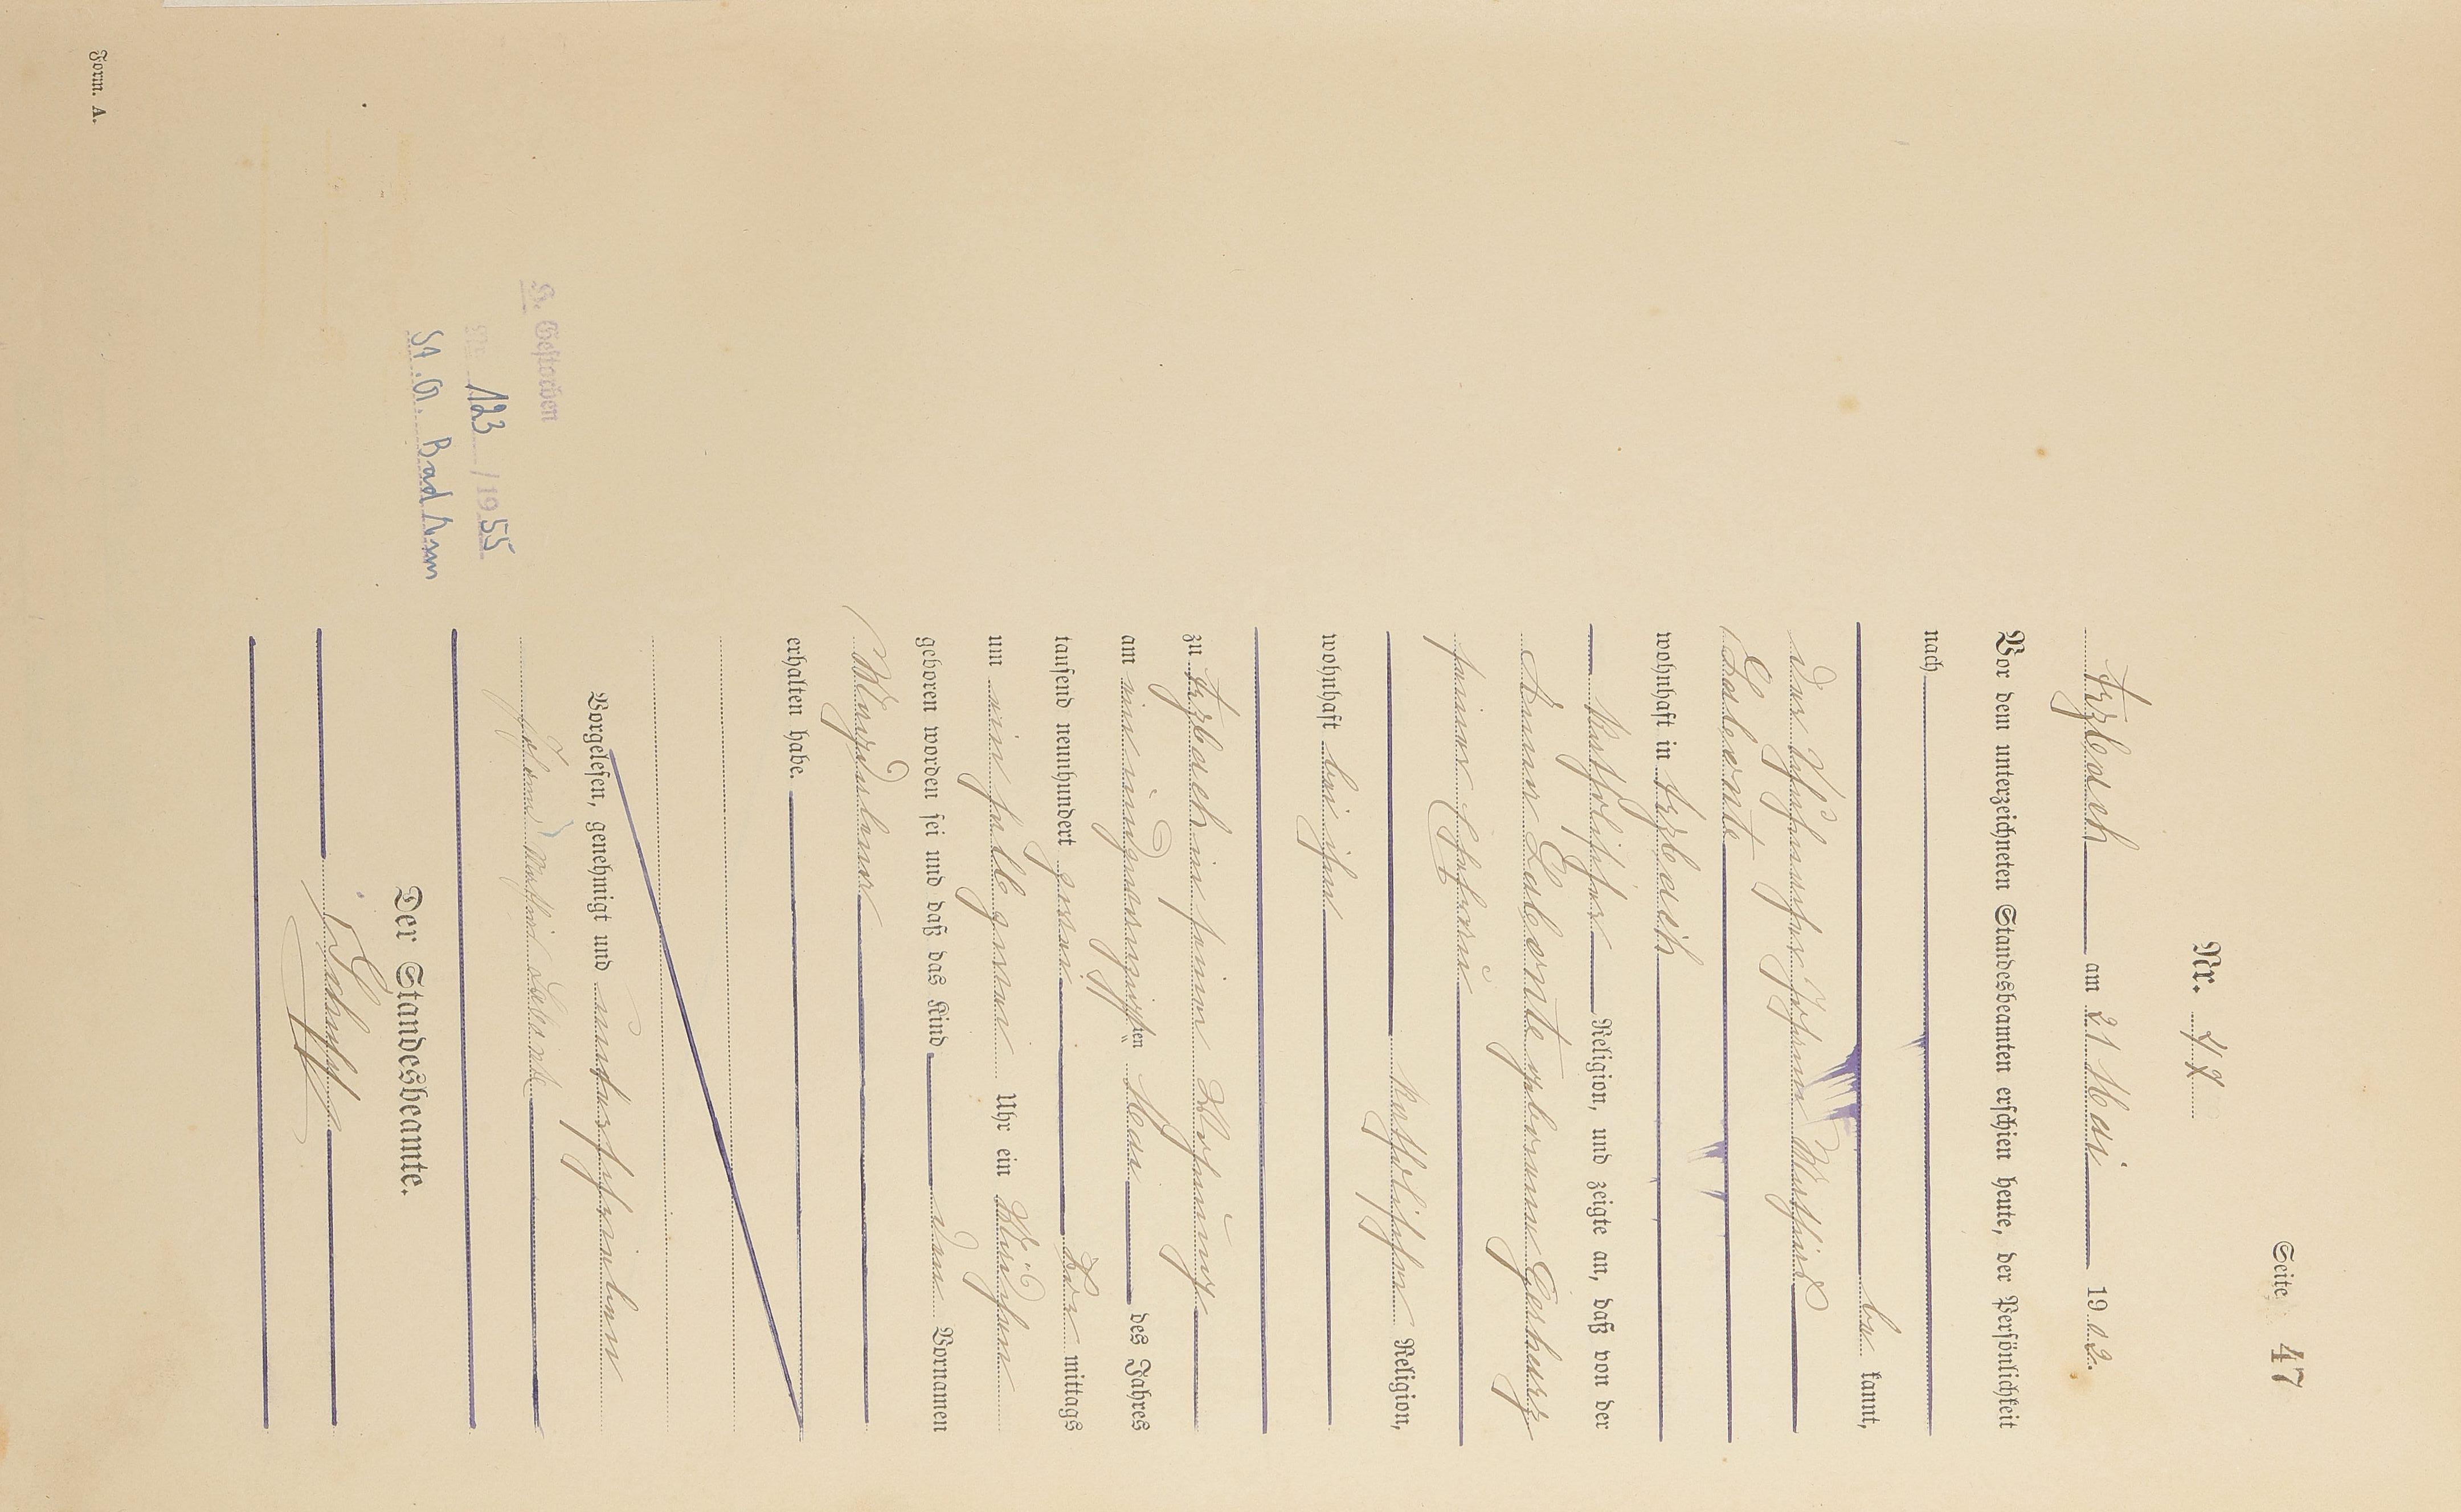 Seite 47
Nr. 47
Arzbach am 21 Mai 1902.
Vor dem unterzeichneten Standesbeamten erschien heute, der Persönlichkeit
nach
be kannt,
der Johann Mathias
Labonte
wohnhaft in Arzbach
katholischer Religion, und zeigte an, daß von der
Anna Labonte geborenen Geshurz
seiner Ehefrau
katholischen Religion,
wohnhaft bei ihm
zu Arzbach in seiner Wohnung
am ein und zwanzigsten Mai des Jahres
tausend neunhundert zwei Vor mittags
um ein halb zwei Uhr ein Mädchen
geboren worden sei und daß das Kind den Vornamen
Magdalena
erhalten habe.
Vorgelesen, genehmigt und unterschrieben
Johann Mathias Labonte
Der Standesbeamte.
H. Gestorben
Nr. 123 / 1955
St.A. Bad Ems
Form. A.